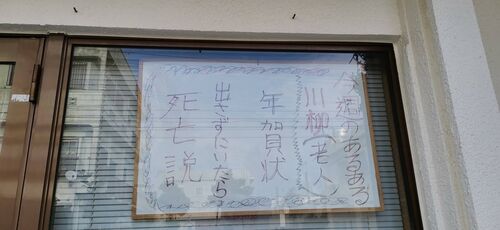 今週のあるある
川柳(老人)
年賀状
出さずにいたら
死亡説